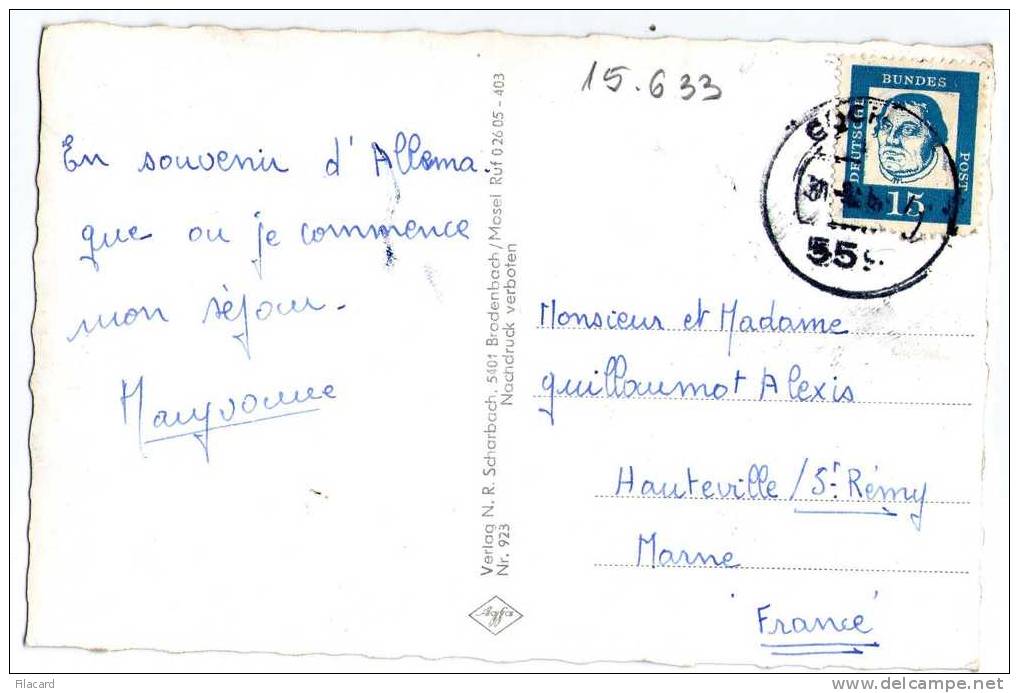 15.633
En souvenir d'Allema.
que ou je commence
mon séjour.
Maryvonne
Verlag N. R. Scharbach, 5401 Brodenbach/Mosel Ruf 02605-403
Nachdruck verboten
Nr. 923
Agfa
DEUTSCHE
BUNDES
POST
15
COCH
55
Monsieur et Madame
Guillaumot Alexis
Hauteville / St Rémy
Marne
France
Filacard
www.delcampe.net